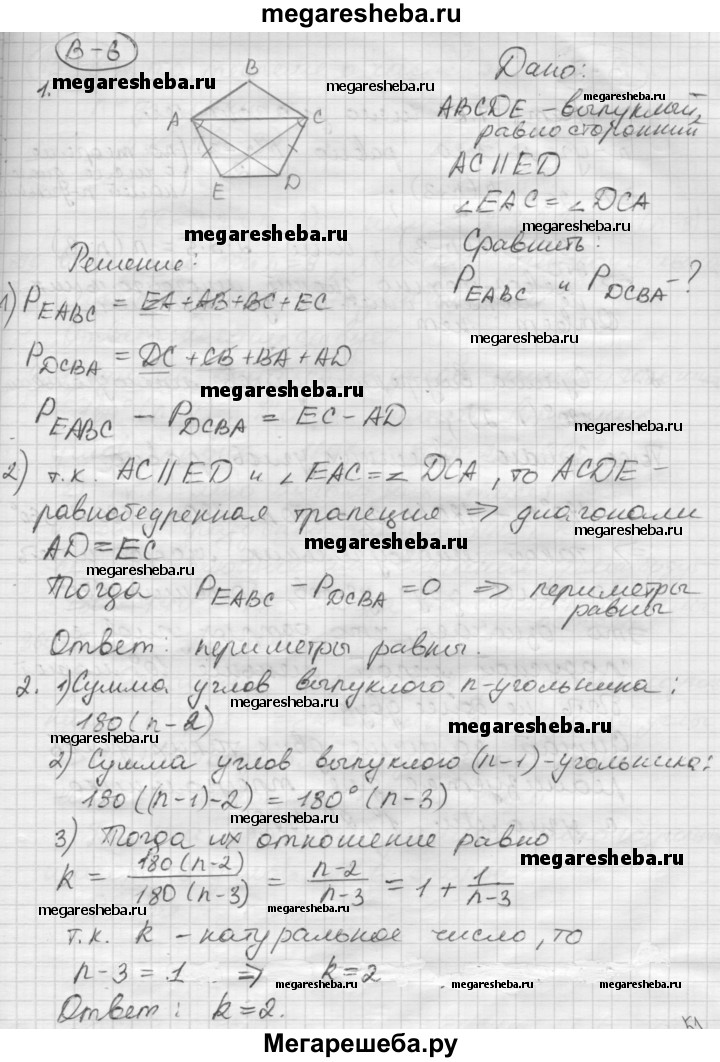 megaresheba.ru
В-6
megaresheba.ru
1.
B
A
C
E
D
Дано:
megaresheba.ru
ABCDE - выпуклый,
равносторонний
AC || ED
∠EAC = ∠DCA
megaresheba.ru
megaresheba.ru
Сравнить:
P EABC и P DCBA - ?
Решение:
1) P EABC = EA + AB + BC + EC
megaresheba.ru
P DCBA = DC + CB + BA + AD
megaresheba.ru
P EABC - P DCBA = EC - AD
megaresheba.ru
2) т.к. AC || ED и ∠EAC = ∠DCA, то ACDE -
равнобедренная трапеция ⇒ диагонали
megaresheba.ru
AD = EC
megaresheba.ru
megaresheba.ru
Тогда P EABC - P DCBA = 0 ⇒ периметры
равны
megaresheba.ru
Ответ: периметры равны.
megaresheba.ru
2. 1) Сумма углов выпуклого n-угольника:
megaresheba.ru
180(n-2)
megaresheba.ru
megaresheba.ru
2) Сумма углов выпуклого (n-1)-угольника:
180((n-1)-2) = 180°(n-3)
megaresheba.ru
megaresheba.ru
3) Тогда их отношение равно
megaresheba.ru
k = 180(n-2)/180(n-3) = n-2/n-3 = 1 + 1/n-3
megaresheba.ru
megaresheba.ru
megaresheba.ru
т.к. k - натуральное число, то
n-3 = 1 ⇒ k = 2
megaresheba.ru
megaresheba.ru
Ответ: k = 2.
megaresheba.ru
51
Мегарешеба.ру